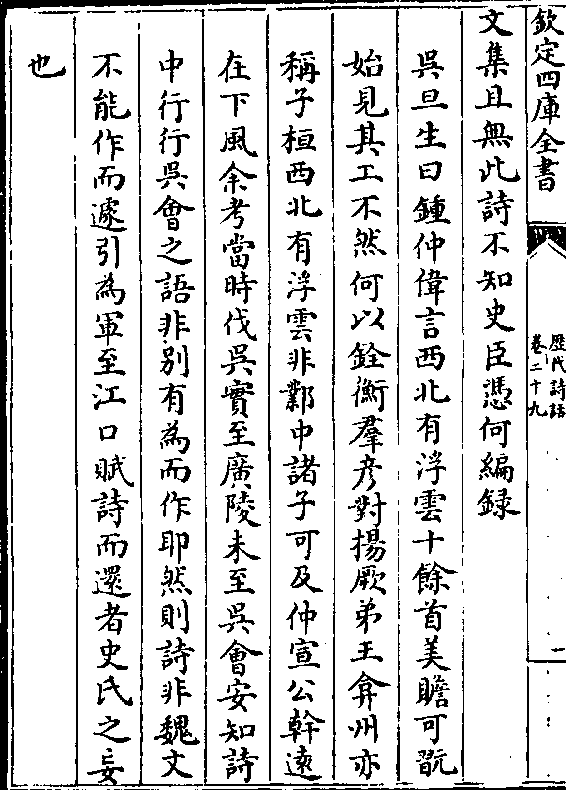 欽定四庫全書
歷代詩話
卷二十九
一
文集且無此詩不知史臣憑何編録
吳旦生曰鍾仲偉言西北有浮雲十餘首美贍可翫
始見其工不然何以銓衡羣彦對揚厥弟王弇州亦
稱子桓西北有浮雲非鄴中諸子可及仲宣公幹遠
在下風余考當時伐吳實至廣陵未至吳會安知詩
中行行吳會之語非别有為而作耶然則詩非魏文
不能作而遽引為軍至江口賦詩而還者史氏之妄
也